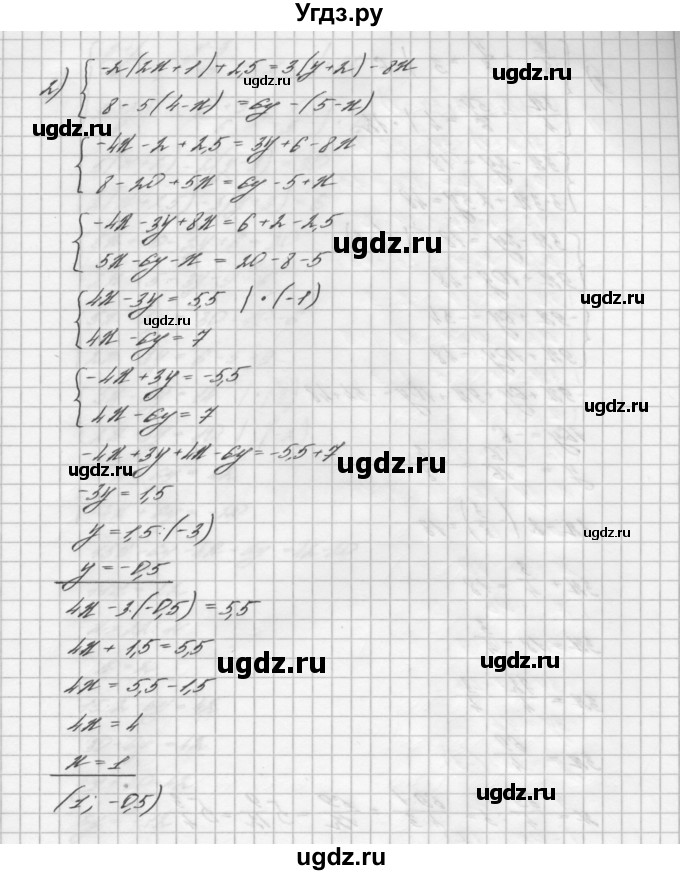 Угдз.ру
2) { -2(2x+1)+2,5=3(y+2)-8x
8-5(4-x) =6y-(5-x)
ugdz.ru
ugdz.ru
{ -4x-2+2,5=3y+6-8x
8-20+5x=6y-5+x
{ -4x-3y+8x=6+2-2,5
ugdz.ru
5x-6y-x=20-8-5
{ 4x-3y=5,5 | ·(-1)
ugdz.ru
ugdz.ru
4x-6y=7
{ -4x+3y=-5,5
ugdz.ru
4x-6y=7
-4x+3y+4x-6y=-5,5+7
ugdz.ru
ugdz.ru
-3y=1,5
y=1,5:(-3)
ugdz.ru
y=-0,5
ugdz.ru
4x-3·(-0,5)=5,5
4x+1,5=5,5
ugdz.ru
ugdz.ru
4x=5,5-1,5
4x=4
x=1
ugdz.ru
(1; -0,5)
ugdz.ru
ugdz.ru